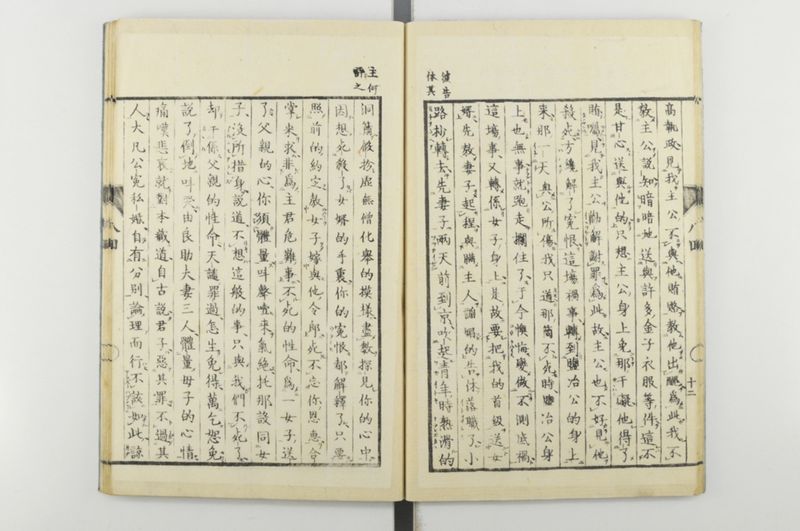 高執政見我主公不與他賄賂教他出醜為此我不
教主公說知暗暗地送與許多金子衣服等件這不
是甘心送與他的只想主公身上免那干礙他得了
賄囑見我主公勸解謝罪為此故主公也不好見他
殺死方纔解了寃恨這塲禍事轉到鹽冶公的身上
來那一天與公所傷我只道那箇不死時鹽冶公身
上也無事就跑走攔住了于今懊悔變做不測底禍
這塲事又轉係女子身上是故要把我的首級送女
婿先教妻子起程與瞞主人諂媚的告休落職了小
路抄轉去先妻子兩天前到京
青年時熟滑的
洞簫假扮虛無僧化舉的模樣盡數探見你的心中
因想死殺了女婿的手裏你的寃恨都解釋了只要
照前的約定教女子嫁與他令郎死不忘你恩惠合
掌來求非為主君危難事不死的性命為一女子送
了父親的心你須體量呌聲噎來氣絶托那設同女
子没所措身說道不想這般的事只與我們不死了
却干係父親的性命天譴罪過怎生免得萬乞恕免
說了倒地呌哭由良助夫妻三人體量母子的心情
痛嘆悲哀就對本藏道自古說君子惡其罪不過其
人大凡公寃私婚自有分别論理而行不該如此諒
十二
八回